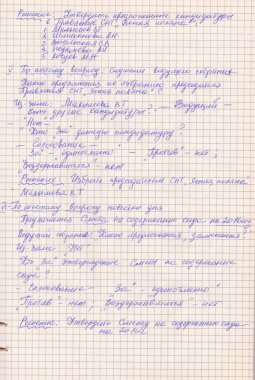 Решение: Утвердить предложенные кандидатуры
в Правление СНТ „Ясная поляна":
1. Малышев В.Г.
2.
3.
4.
5.
V По пятому вопросу: Слушали ведущего собрания
Какие предложения по избранию председателя
Правления СНТ „Ясная поляна"?
Из зала: Малышева В.Г. - Ведущий -
Есть другие кандидатуры?
- „Нет"
Кто „За" данную кандидатуру?
- Голосование -
„За" - единогласно - „Против" - нет,
„Воздержавшихся" - нет
Решение: Избрать председателем СНТ „Ясная поляна"
Малышева В.Г.
VI По шестому вопросу повестки дня
Предлагается Смета на содержание сада на 20 год
Ведущий собрания: Какие предложения, замечания?
Из зала „Нет"
Кто „За" утверждение Сметы на содержание
сада?
Голосование - „За" - единогласно
„Против" - нет; „Воздержавшихся" - нет
Решение: Утвердить Смету на содержание сада
на 20